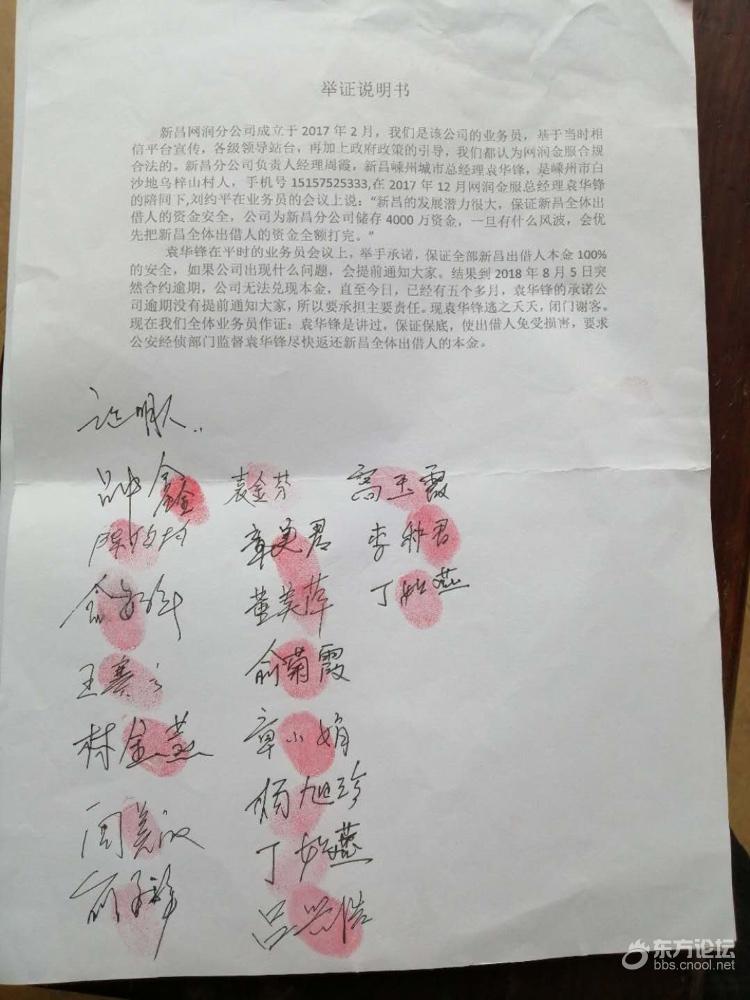 举证说明书
新昌网润分公司成立于 2017 年 2 月，我们是该公司的业务员，基于当时相
信平台宣传，各级领导站台，再加上政府政策的引导，我们都认为网润金服合规
合法的。新昌分公司负责人经理周霞，新昌嵊州城市总经理袁华锋，是嵊州市白
沙地乌梓山村人，手机号 15157525333,在 2017 年 12 月网润金服总经理袁华锋
的陪同下,刘约平在业务员的会议上说："新昌的发展潜力很大，保证新昌全体出
借人的资金安全，公司为新昌分公司储存 4000 万资金，一旦有什么风波，会优
先把新昌全体出借人的资金全额打完。"
袁华锋在平时的业务员会议上，举手承诺，保证全部新昌出借人本金 100%
的安全，如果公司出现什么问题，会提前通知大家。结果到 2018 年 8 月 5 日突
然合约逾期，公司无法兑现本金，直至今日，已经有五个多月，袁华锋的承诺公
司逾期没有提前通知大家，所以要承担主要责任。现袁华锋逃之夭夭，闭门谢客。
现在我们全体业务员作证：袁华锋是讲过，保证保底，使出借人免受损害，要求
公安经侦部门监督袁华锋尽快返还新昌全体出借人的本金。
证明人..
袁金芬
玉霞
章美君
李 君
董美萍
丁 燕
王赛
俞菊霞
林金燕
章小娟
杨旭珍
周美
丁 燕
吕
东方论坛
bbs.cnool.net